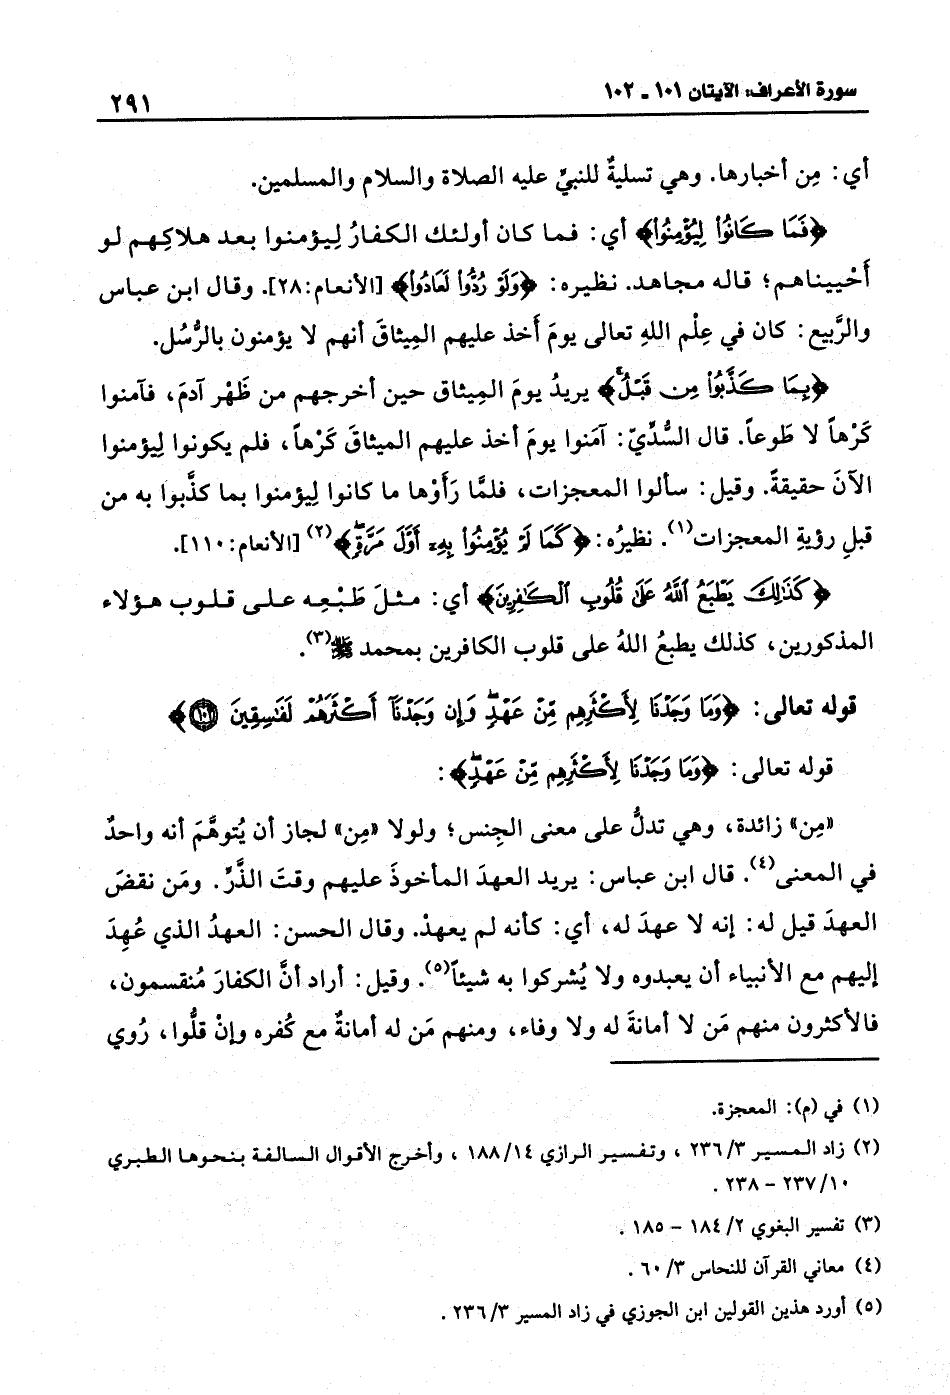 سورة الأعراف: الآيتان ١٠١ - ١٠٢
٢٩١
أي: مِن أخبارها. وهي تسليةٌ للنبيِّ عليه الصلاة والسلام والمسلمين.
﴿فَمَا كَانُوا لِيُؤْمِنُوا﴾ أي: فما كان أولئك الكفارُ لِيؤمنوا بعد هلاكِهم لو
أَحْييناهم؛ قاله مجاهد. نظيره: ﴿وَلَوْ رُدُّوا لَعَادُوا﴾ [الأنعام:٢٨]. وقال ابن عباس
والرَّبيع: كان في عِلْم اللهِ تعالى يومَ أَخذ عليهم المِيثاقَ أنهم لا يؤمنون بالرُّسُل.
﴿بِمَا كَذَّبُوا مِن قَبْلُ﴾ يريدُ يومَ المِيثاق حين أخرجهم من ظَهْر آدمَ، فآمنوا
كَرْهاً لا طَوعاً. قال السُّدِّيّ: آمَنوا يومَ أخذ عليهم الميثاقَ كَرْهاً، فلم يكونوا لِيؤمنوا
الآنَ حقيقةً. وقيل: سألوا المعجزات، فلمَّا رَأَوْها ما كانوا لِيؤمنوا بما كذَّبوا به من
قبلِ رؤيةِ المعجزات(١). نظيرُه: ﴿كَمَا لَمْ يُؤْمِنُوا بِهِ أَوَّلَ مَرَّةٍ﴾(٢) [الأنعام:١١٠].
﴿كَذَٰلِكَ يَطْبَعُ ٱللَّهُ عَلَىٰ قُلُوبِ ٱلْكَٰفِرِينَ﴾ أي: مثلَ طَبْعِه على قلوب هؤلاء
المذكورين، كذلك يطبعُ اللهُ على قلوب الكافرين بمحمد ﷺ(٣).
قوله تعالى: ﴿وَمَا وَجَدْنَا لِأَكْثَرِهِم مِّنْ عَهْدٍ وَإِن وَجَدْنَا أَكْثَرَهُمْ لَفَٰسِقِينَ ١٠٢﴾
قوله تعالى: ﴿وَمَا وَجَدْنَا لِأَكْثَرِهِم مِّنْ عَهْدٍ﴾:
«مِن» زائدة، وهي تدلُّ على معنى الجِنس؛ ولولا «مِن» لجاز أن يُتوهَّمَ أنه واحدٌ
في المعنى(٤). قال ابن عباس: يريد العهدَ المأخوذَ عليهم وقتَ الذَّرِّ. ومَن نقضَ
العهدَ قيل له: إنه لا عهدَ له، أي: كأنه لم يعهدْ. وقال الحسن: العهدُ الذي عُهِدَ
إليهم مع الأنبياء أن يعبدوه ولا يُشركوا به شيئاً(٥). وقيل: أراد أنَّ الكفارَ مُنقسمون،
فالأكثرون منهم مَن لا أمانةَ له ولا وفاء، ومنهم مَن له أمانةٌ مع كُفره وإنْ قلُّوا، رُوي
(١) في (م): المعجزة.
(٢) زاد المسير ٢٣٦/٣ ، وتفسير الرازي ١٨٨/١٤ ، وأخرج الأقوال السالفة بنحوها الطبري
٢٣٧/١٠ - ٢٣٨ .
(٣) تفسير البغوي ١٨٤/٢ - ١٨٥ .
(٤) معاني القرآن للنحاس ٦٠/٣ .
(٥) أورد هذين القولين ابن الجوزي في زاد المسير ٢٣٦/٣ .